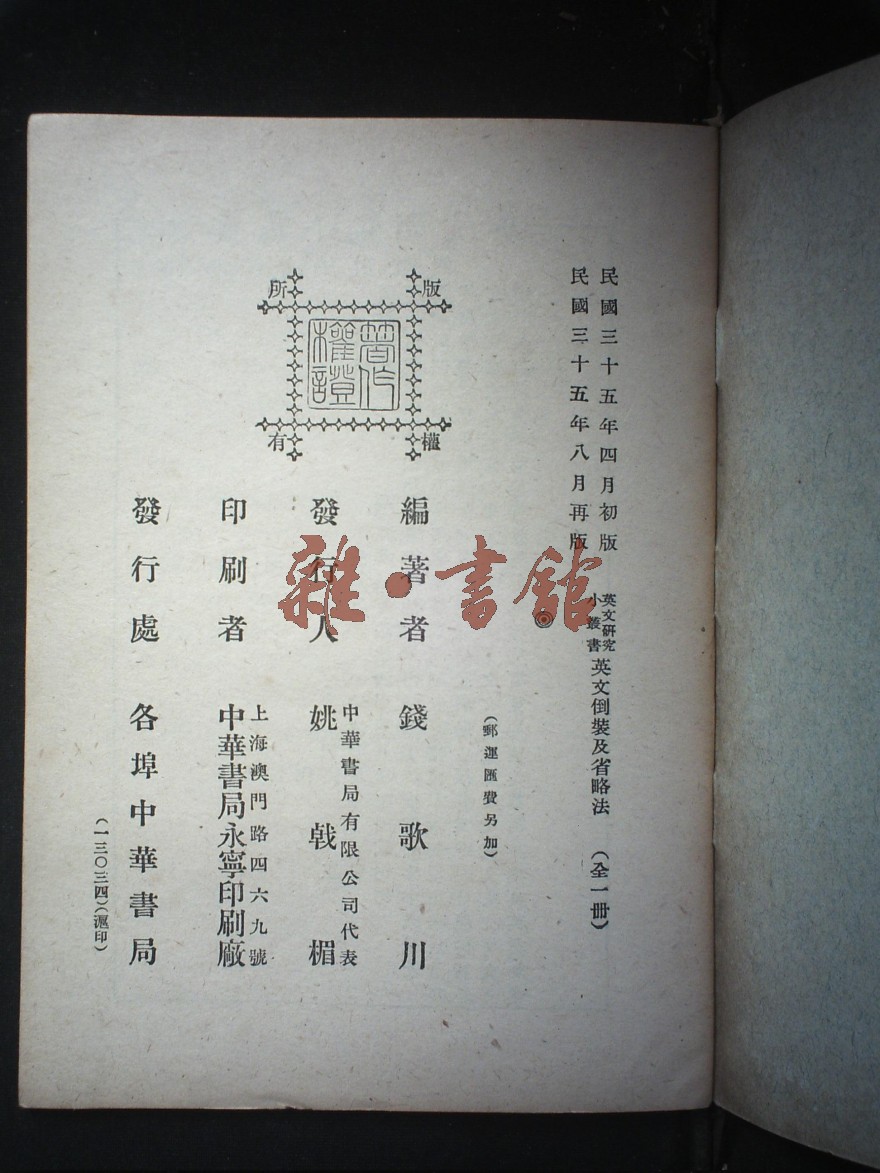 民國三十五年四月初版
民國三十五年八月再版
英文研究
小叢書
英文倒裝及省略法
(全一冊)
◎
(郵運匯費另加)
版權所有
著作權證
編著者 錢歌川
發行人 姚戟楣
中華書局有限公司代表
印刷者 中華書局永寧印刷廠
上海澳門路四六九號
發行處 各埠中華書局
(一三〇三四)(滬印)
雜·書館